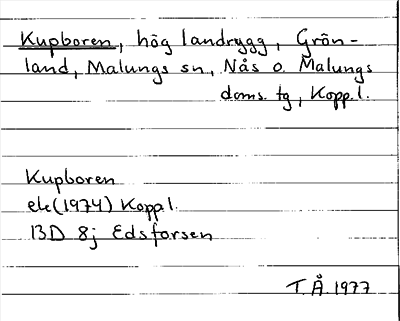 Kupboren, hög landrygg, Grön-
land, Malungs sn, Nås o. Malungs
doms. tg, Kopp.l.
Kupboren
ek (1974) Kopp l.
13D 8j Edsforsen
T.Å. 1977